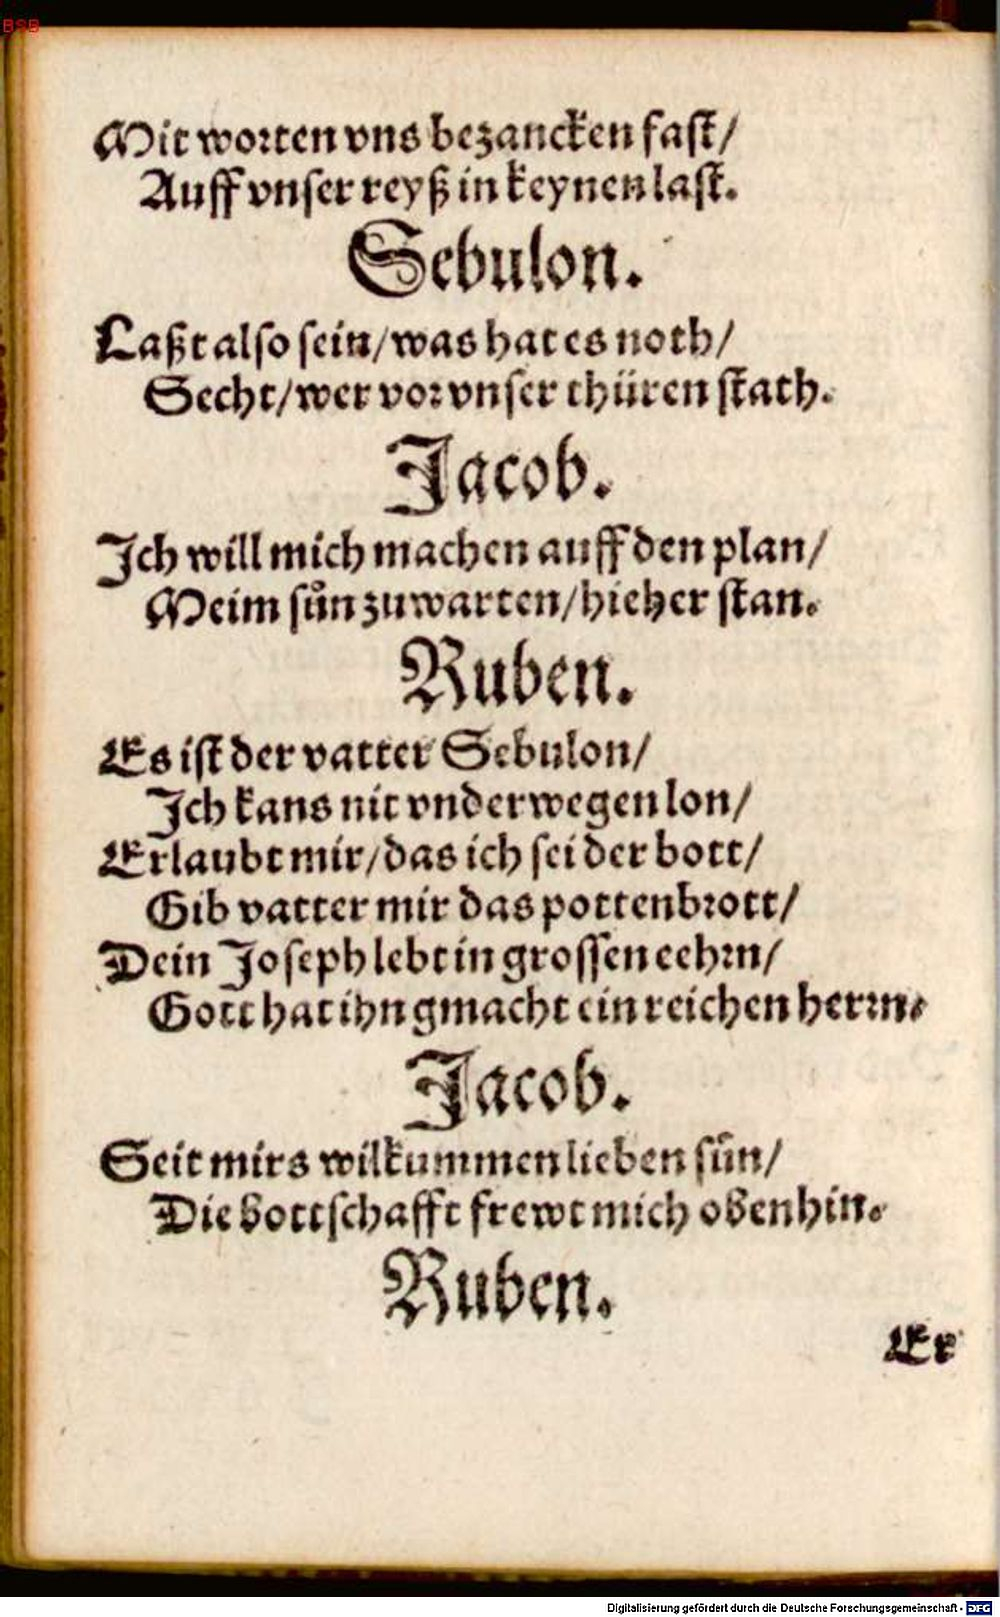 BSB
Mit worten vns bezancken fast/
Auff vnser reyß in keynen last.
Sebulon.
Laßt also sein/was hat es noth/
Secht/wer vor vnser thüren stath.
Jacob.
Ich will mich machen auff den plan/
Meim sün zuwarten/hieher stan.
Ruben.
Es ist der vatter Sebulon/
Ich kans nit vnderwegen lon/
Erlaubt mir/das ich sei der bott/
Gib vatter mir das pottenbrott/
Dein Joseph lebt in grossen eehrn/
Gott hat ihn gmacht ein reichen herrn.
Jacob.
Seit mirs wilkummen lieben sün/
Die bottschafft frewt mich obenhin.
Ruben.
Er
Digitalisierung gefördert durch die Deutsche Forschungsgemeinschaft - DFG